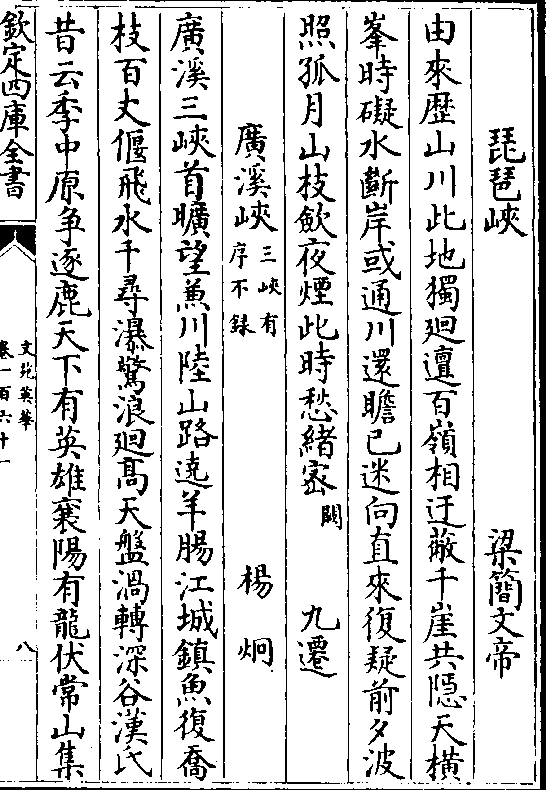 琵琶峽 梁簡文帝
由來歴山川此地獨廻邅百嶺相迂蔽千崖共隠天横
峯時礙水斷岸或通川還瞻已迷向直來復疑前夕波
照孤月山枝斂夜煙此時愁緒密闕 九遷
廣溪峽三峽有序不録 楊炯
廣溪三峽首曠望兼川陸山路遶羊腸江城鎮魚復喬
枝百丈偃飛水千尋瀑驚浪廻高天盤渦轉深谷漢氏
昔云季中原争逐鹿天下有英雄襄陽有龍伏常山集
欽定四庫全書
文苑英華
卷一百六十一
八